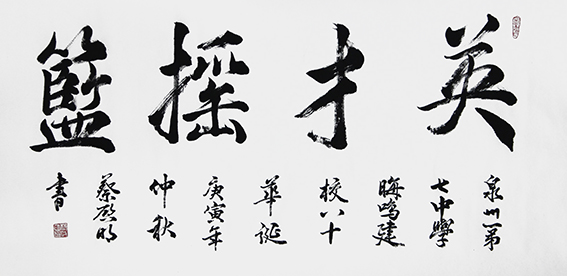 英才搖籃
泉州第
七中學
晦鳴建
校八十
華誕
庚寅年
仲秋
蔡
書